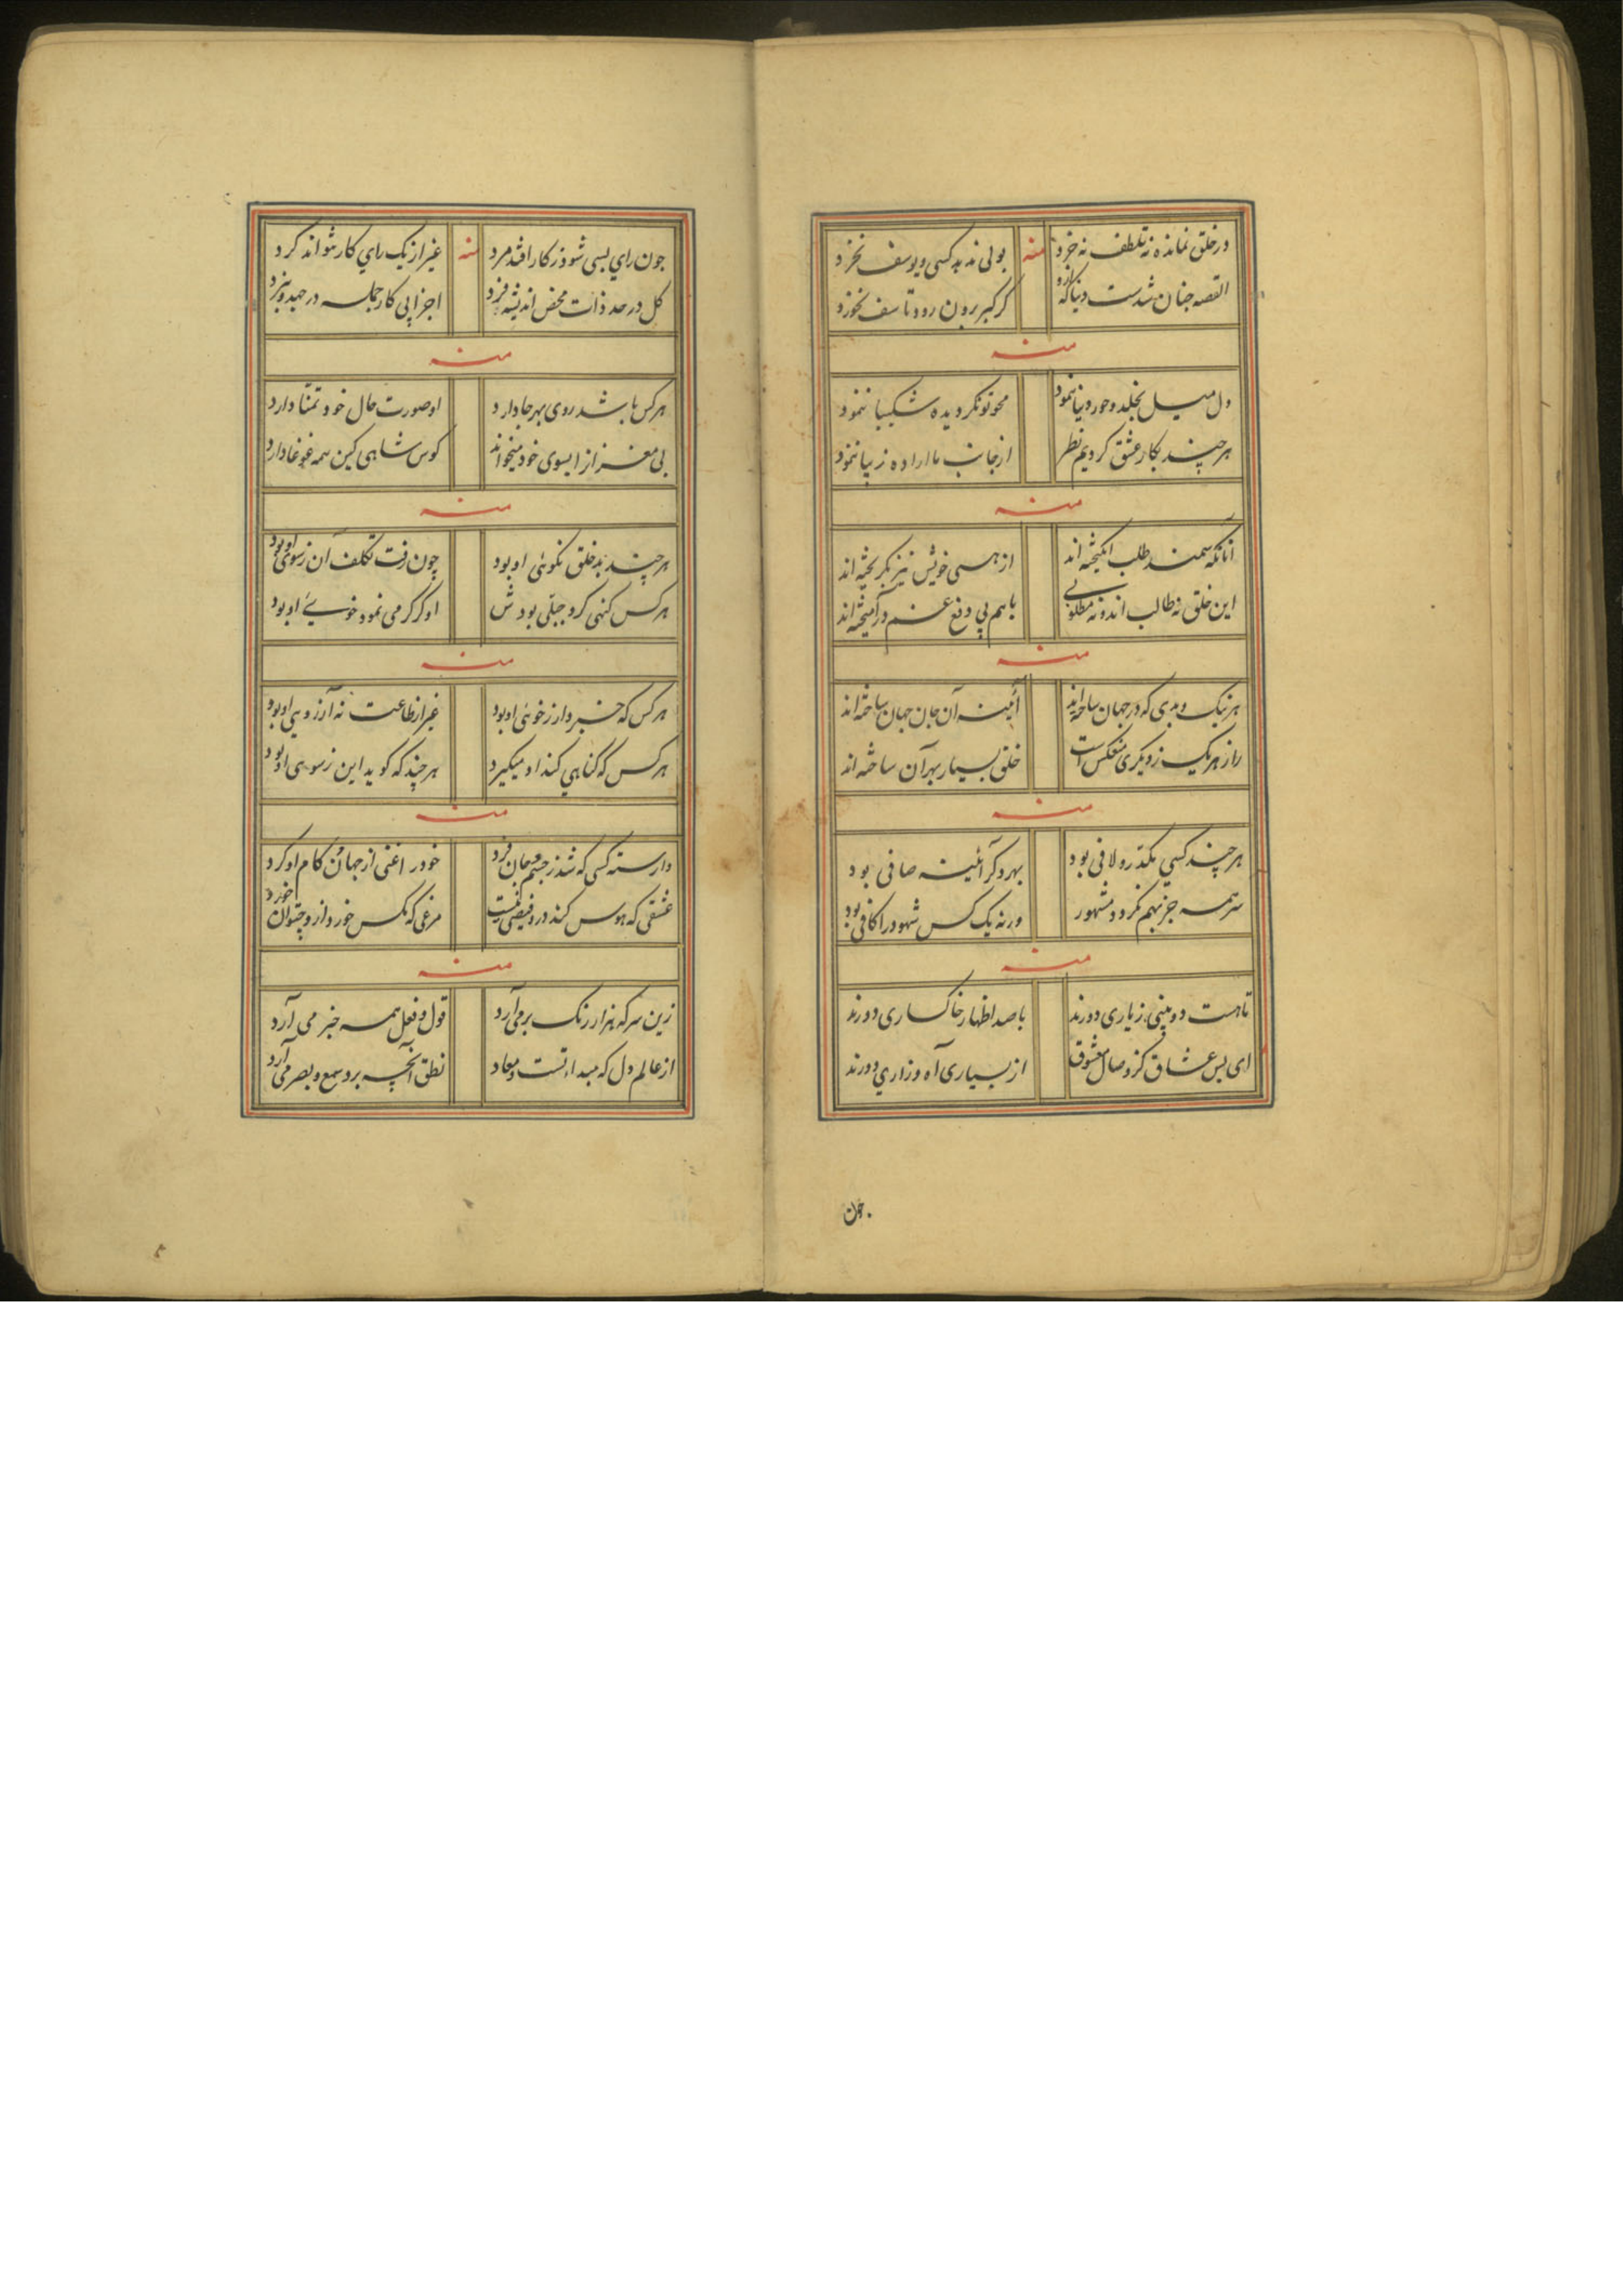 در خلق نمانده نه تلطف نه خرد منه بوئی ندهد کسی و یوسف نخرد
القصه چنان شدست دنیا که ازو گر کبر برون رود تاسف نخورد
منه
دل میل بخلد و حور دنیا ننمود محو تو نکر دیده شکیبا ننمود
هر چند بکار عشق کردیم نظر از جانب ما اراده زیبا ننمود
منه
آنانکه سمند طلب انگیخته اند از هستی خویش نیز بگریخته اند
این خلق نه طالب اند و نه مطلوبی باهم پی دفع غم در آمیخته اند
منه
هر نیک و بدی که در جهان ساخته اند آئینه آن جان جهان ساخته اند
راز هر یک ز دیگری منعکس است خلق بسیار بهر آن ساخته اند
منه
هر چند کسی بکذر و لافی بود بهر دگر آئینه صافی بود
سر همه جز بهم نگردد مشهور ورنه یک کس شهود را کافی بود
منه
تا هست دوبینی ز یاری دورند با صد اظهار خاکساری دورند
ای بس عشاق کز وصال معشوق از بسیاری آه و زاری دورند
چون
چون رای بسی شود ز کار افتد مرد منه غیر از یک رای کار نتواند کرد
کل در حد ذات محض اندیشه فرد اجزا پی کار جمله در جهد و نبرد
منه
هر کس باشد روی بهر جا دارد او صورت حال خود تمنا دارد
بی مغز از ایسوی خود میخواند کوس شاهی کین همه غوغا دارد
منه
هر چند بد خلق نکوئی او بود چون رفت تکلف آن ز سوی او بود
هر کس کنهی کرد جبلی بودش او گر کرمی نمود خوئے او بود
منه
هر کس که خبر دار ز خوئی او بود غیر از طاعت نه آرزویی او بود
هر کس که گناهی کند او میگیرد هر چند که گوید این ز سوی او بود
منه
وارسته کسی که شد ز جسم و جان فرد خود را غنی از جهان و کام او کرد
عشقی که هوس کند درو فیضی نیست مرغی که مگس خورد ازو چتوان خورد
منه
زین سر که هزار رنگ بر می آرد قول و فعل همه خبر می آرد
از عالم دل که مبداء تست و معاد نطق آنچه برد سمع و بصر می آرد